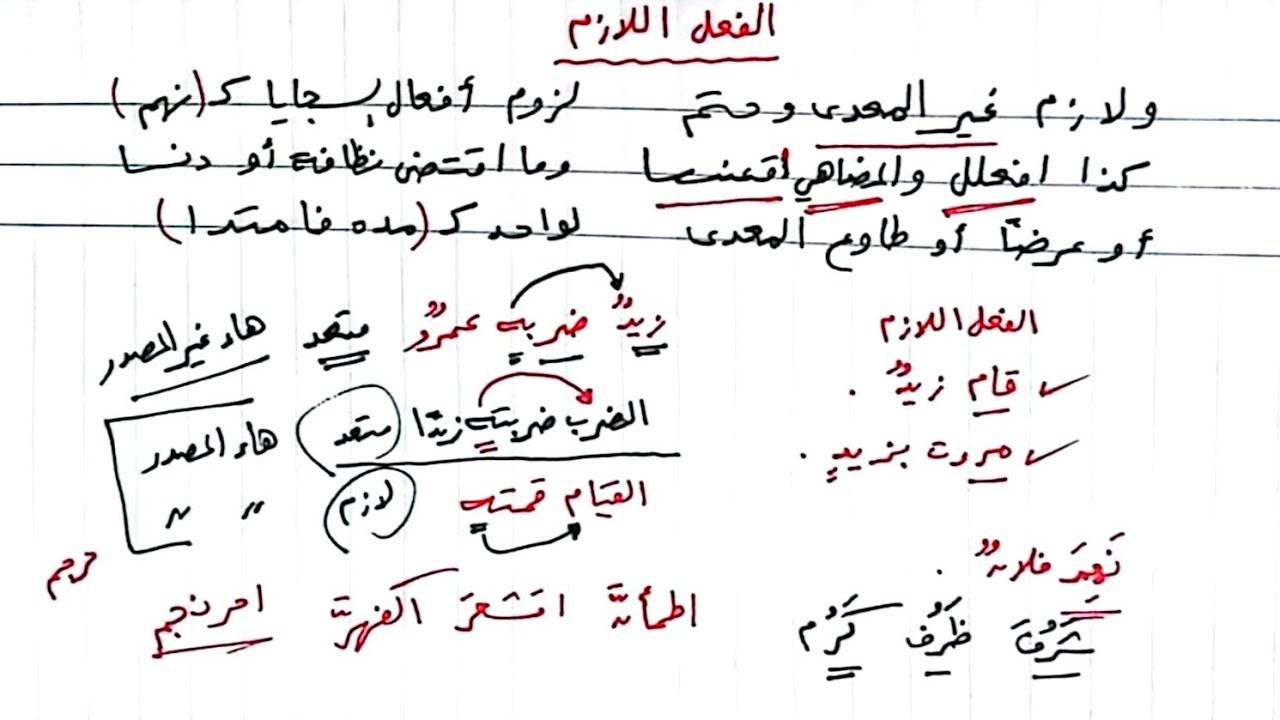 الفعل اللازم
ولازم غير المعدى وحتم لزوم أفعال السجايا كـ(نهم)
كذا افعلل والمضاهي اقعنسسا وما اقتضى نظافة أو دنسا
أو عرضًا أو طاوع المعدى لواحد كـ(مده فامتدا)
الفعل اللازم
قام زيدٌ .
مررت بزيدٍ .
فلان .
شَرُفَ ظَرُف كَرُم
زيدٌ ضربه عمرو متعد هاء غير المصدر
الضرب ضربته زيدًا متعد هاء المصدر
القيام قمته لازم " "
اطمأنَّ اقشعرَّ اكفهرَّ احرنجم
حرجم